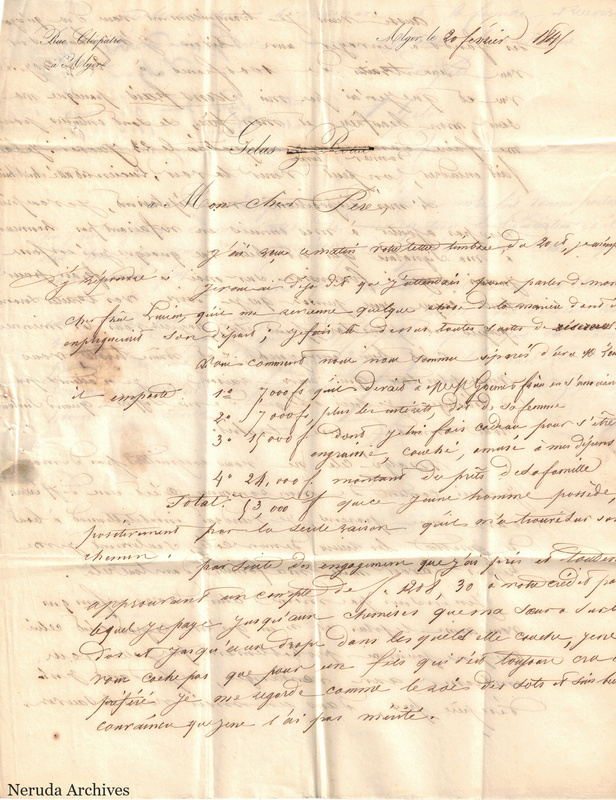 Rue Cléopâtre
à Alger
Alger, le 20 février 1845
Gelas
Mon cher Père,
J'ai reçu ce matin votre lettre timbrée du 20 ct, je
y répondre je vous ai déjà dit que j'attendais pour parler de mon
cher frère Lucien, qu'il me revienne quelque chose de la manière dont
expliquerait son départ ; je fais là dessus toutes sortes de réserves
Voici comment nous nous sommes séparés
il emporte 1° 7000 fs qu'il devait à
2° 7000 fs, plus les intérêts dot de sa femme
3° 15,000 f dont je lui fais cadeau pour s'être
engrainé, couché, amusé à mes dépens
4° 24,000 f. montant du prêts de sa famille
Total. 53,000 f que ce jeune homme possède
positivement par la seule raison qu'il m'a trouvé sur son
chemin.
par suite des engagement que j'ai pris et
approuvant un compte de f. 1208,30 à votre crédit
lequel je paye jusqu'aux chemises que ma sœur a sur le
dos et jusqu'aux draps dans lesquels elle couche, je ne
vous cache pas que pour un fils qui s'est toujours cru
préféré je me regarde comme le roi des sots et suis
convaincu que je ne l'ai pas mérité.
Neruda Archives